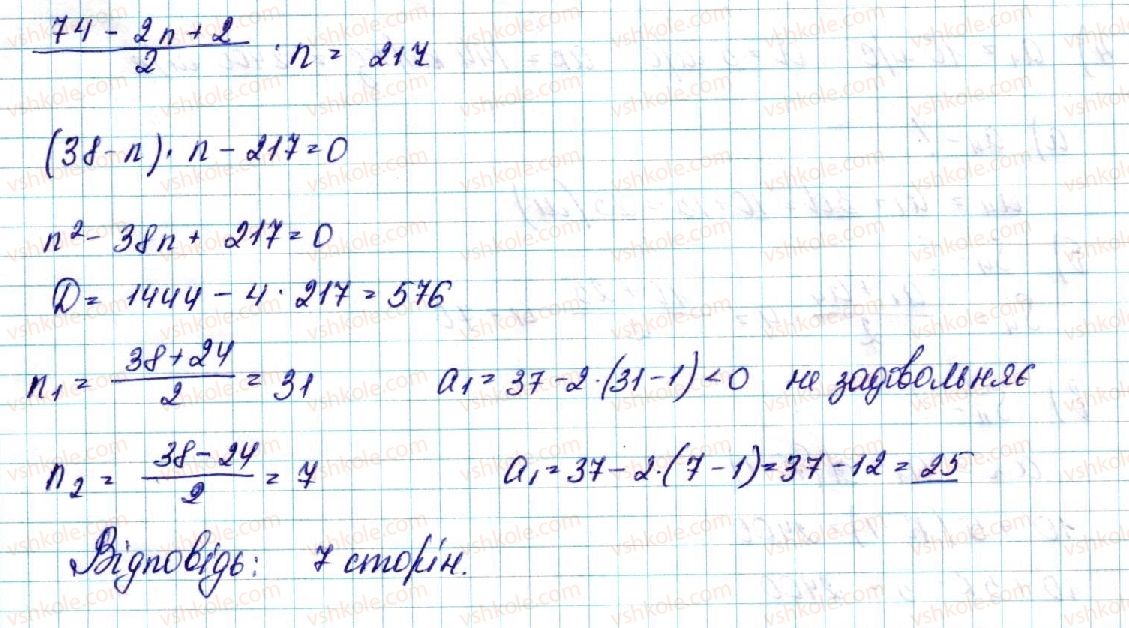 (74 - 2n + 2)/2 · n = 217
(38 - n) · n - 217 = 0
n² - 38n + 217 = 0
D = 1444 - 4 · 217 = 576
n₁ = (38 + 24)/2 = 31   a₁ = 37 - 2 · (31 - 1) < 0 не задовольняє
n₂ = (38 - 24)/2 = 7   a₁ = 37 - 2 · (7 - 1) = 37 - 12 = 25
Відповідь: 7 сторін.
vshkole.com